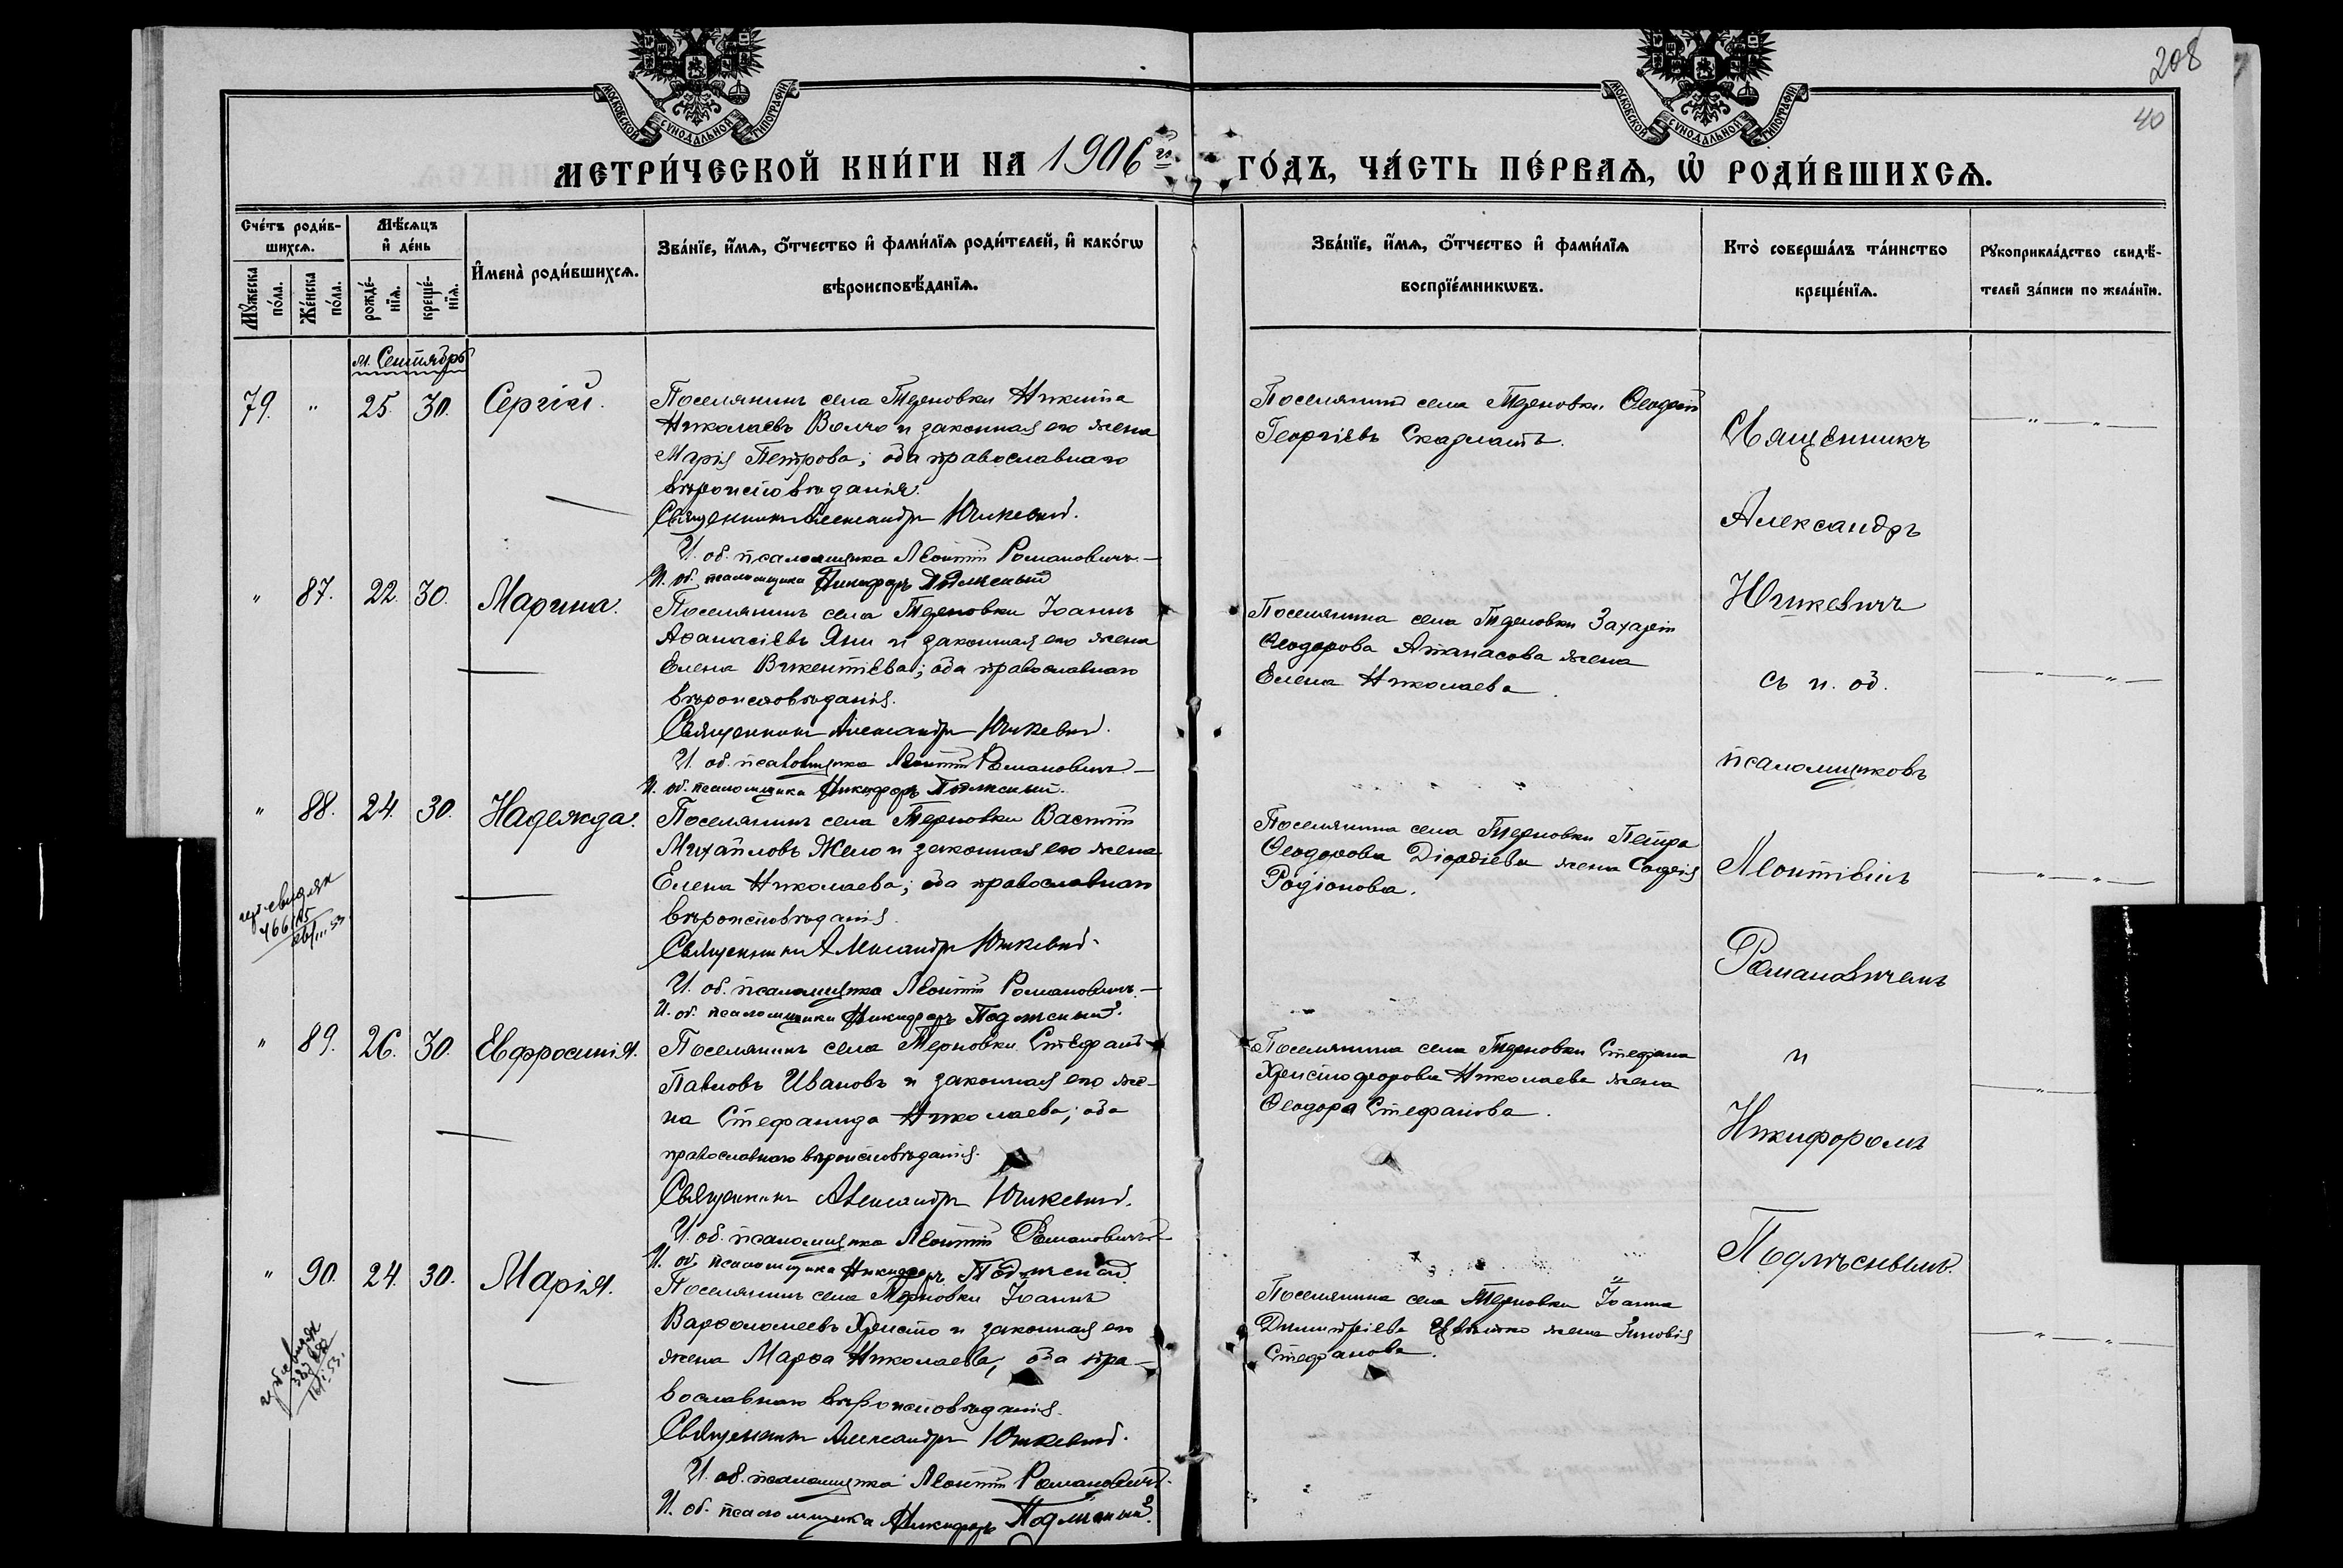 208
40
МОСКОВСКОЙ СѴНОДАЛЬНОЙ ТИПОГРАФІИ
МОСКОВСКОЙ СѴНОДАЛЬНОЙ ТИПОГРАФІИ
МЕТРИ́ЧЕСКОЙ КНИ́ГИ НА 1906 й
ГО́ДЪ, ЧА́СТЬ ПЕ́РВАѦ, Ѡ҆ РОДИ́ВШИХСѦ.
Сче́тъ роди́в-
шихсѧ.
Мѣ́сѧцъ
и҆ де́нь
Мꙋ́жеска
по́ла.
Же́нска
по́ла.
рожде́-
нїѧ.
креще́-
нїѧ.
И҆мена̀ роди́вшихсѧ.
Зва́нїе, и҆́мѧ, ѻ҆́тчество и҆ фами́лїѧ роди́телей, и҆ како́гѡ
вѣроисповѣ́данїѧ.
Зва́нїе, и҆́мѧ, ѻ҆́тчество и҆ фами́лїѧ
воспрїе́мникѡвъ.
Кто̀ соверша́лъ та́инство
креще́нїѧ.
Рꙋкоприкла́дство свидѣ́-
телей за́писи по жела́нїю.
м. Сентябрь
79. " 25. 30. Сергій.
Поселянинъ села Терновки Никита
Николаевъ Волчо и законная его жена
Марія Петрова; оба православнаго
вѣроисповѣданія.
Священникъ Александръ Юшкевичъ.
И. об. псаломщика Леонтій Романовичъ
И. об. псаломщика Никифоръ Подлѣсный
Поселянинъ села Терновки Ѳеодоръ
Георгіевъ Скарлатъ.
" 87. 22. 30. Марина.
Поселянинъ села Терновки Іоаннъ
Аѳанасіевъ Яни и законная его жена
Елена Викентіева; оба православнаго
вѣроисповѣданія.
Священникъ Александръ Юшкевичъ.
И. об. псаломщика Леонтій Романовичъ
И. об. псаломщика Никифоръ Подлѣсный.
Поселянина села Терновки Захарія
Ѳеодорова Атанасова жена
Елена Николаева.
" 88. 24. 30. Надежда.
Поселянинъ села Терновки Василій
Михайловъ Жело и законная его жена
Елена Николаева; оба православнаго
вѣроисповѣданія.
Священникъ Александръ Юшкевичъ.
И. об. псаломщика Леонтій Романовичъ
И. об. псаломщика Никифоръ Подлѣсный.
Поселянина села Терновки Петра
Ѳеодорова Діордіева жена Софія
Родіонова.
" 89. 26. 30. Евфросинія.
Поселянинъ села Терновки Стефанъ
Павловъ Ивановъ и законная его же-
на Стефанида Николаева; оба
православнаго вѣроисповѣданія.
Священникъ Александръ Юшкевичъ.
И. об. псаломщика Леонтій Романовичъ
И. об. псаломщика Никифоръ Подлѣсный
Поселянина села Терновки Стефана
Христофорова Николаева жена
Ѳеодора Стефанова.
" 90. 24. 30. Марія.
Поселянинъ села Терновки Іоаннъ
Варѳоломеевъ Христо и законная его
жена Марѳа Николаева, оба пра-
вославнаго вѣроисповѣданія.
Священникъ Александръ Юшкевичъ.
И. об. псаломщика Леонтій Романовичъ.
И. об. псаломщика Никифоръ Подлѣсный.
Поселянина села Терновки Іоанна
Димитріева Цвѣтко жена Зиновія
Стефанова.
Священникъ
Александръ
Юшкевичъ
съ и. об.
псаломщиковъ
Леонтіемъ
Романовичемъ
и
Никифоромъ
Подлѣснымъ.